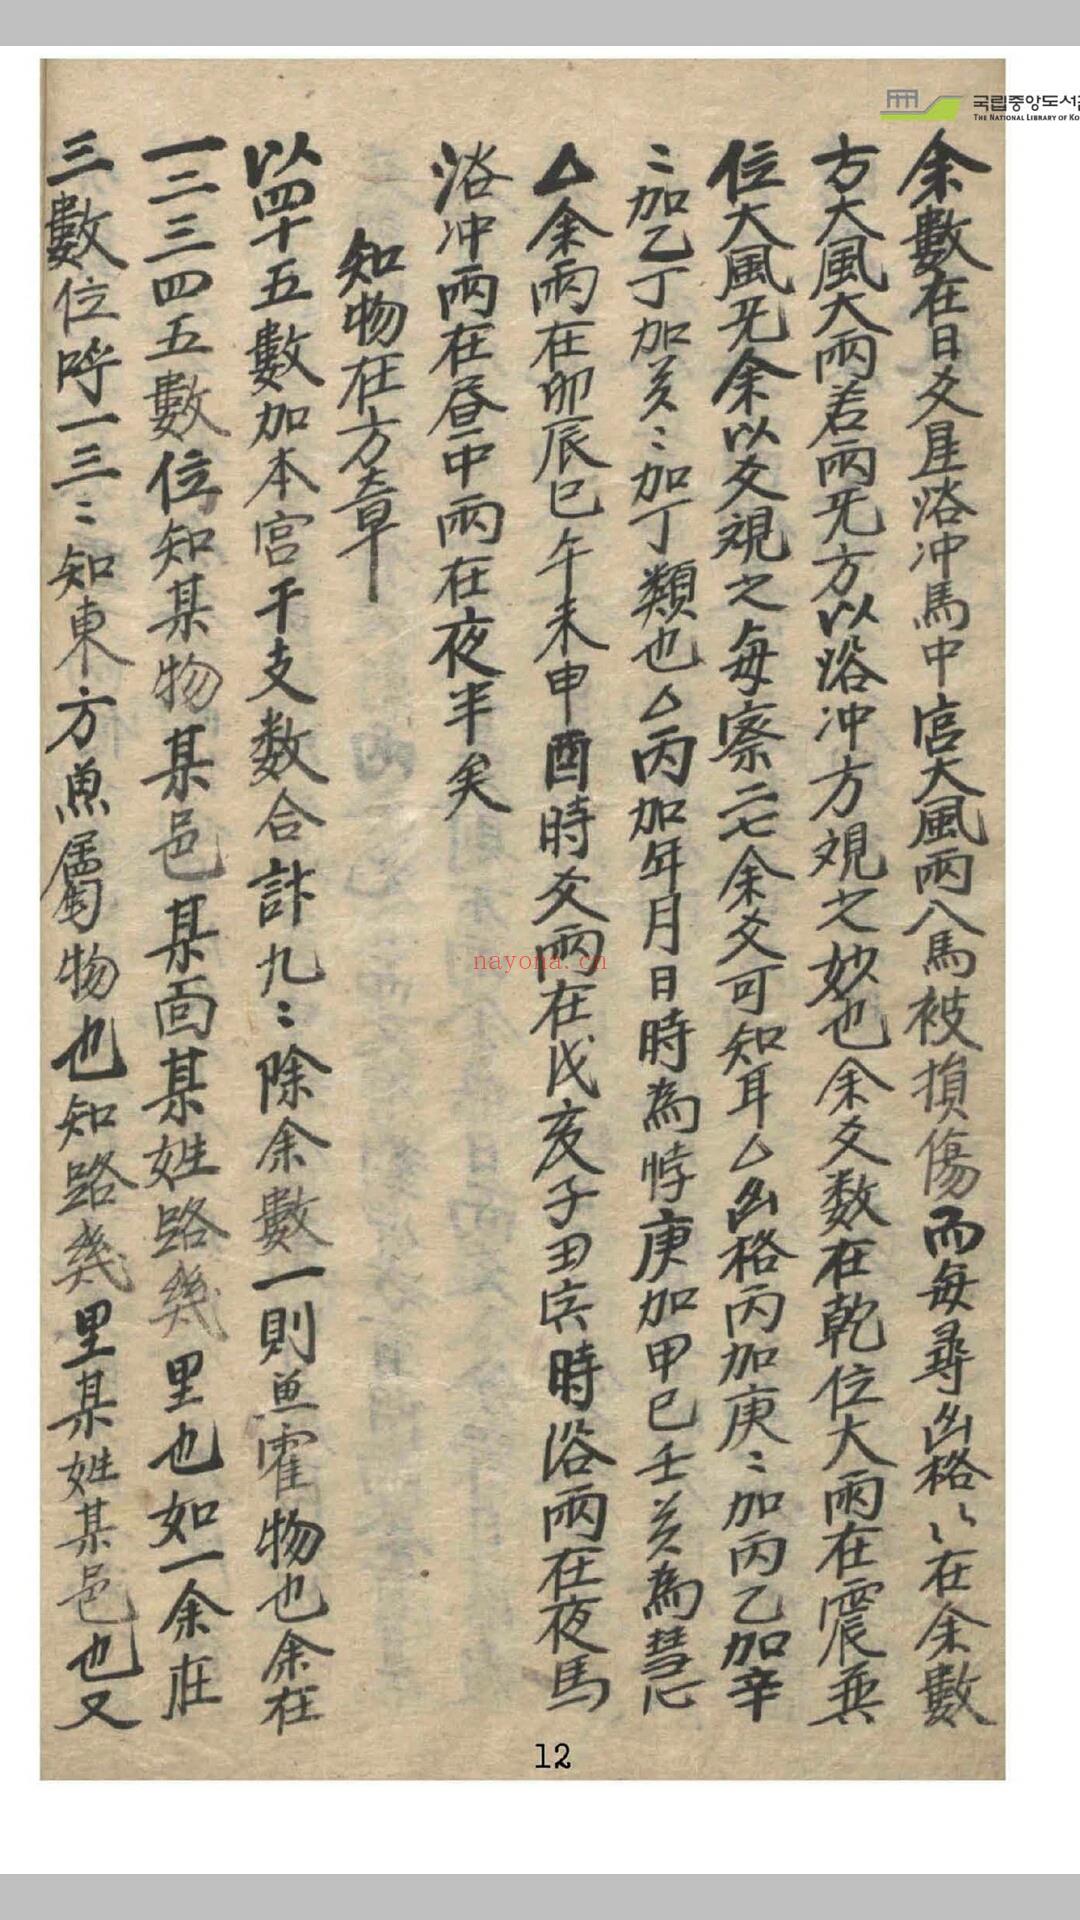 국립중앙도서관
THE NATIONAL LIBRARY OF KO
余數在日爻星浴冲馬中宮大風雨八馬被損傷而每尋凶格〻在余數
方大風大雨若雨旡方以浴冲方覌之妙也余爻数在乾位大雨在震兼
位大風旡余以爻視之每察二七余爻可知耳△凶格丙加庚〻加丙乙加辛
〻加乙丁加癸〻加丁類也△丙加年月日時為悖庚加甲巳壬癸為慧心
△余雨在卯辰巳午未申酉時爻雨在戌亥子丑寅時浴雨在夜馬
浴冲雨在昼中雨在夜半矣
知物在方章
以四十五數加本宮干支数合計九〻除余數一則魚霍物也余在
一二三四五數位知某物某邑某面某姓路幾里也如一余在
三數位呼一三〻知東方魚屬物也知路幾里某姓某邑也又
nayona.cn
12